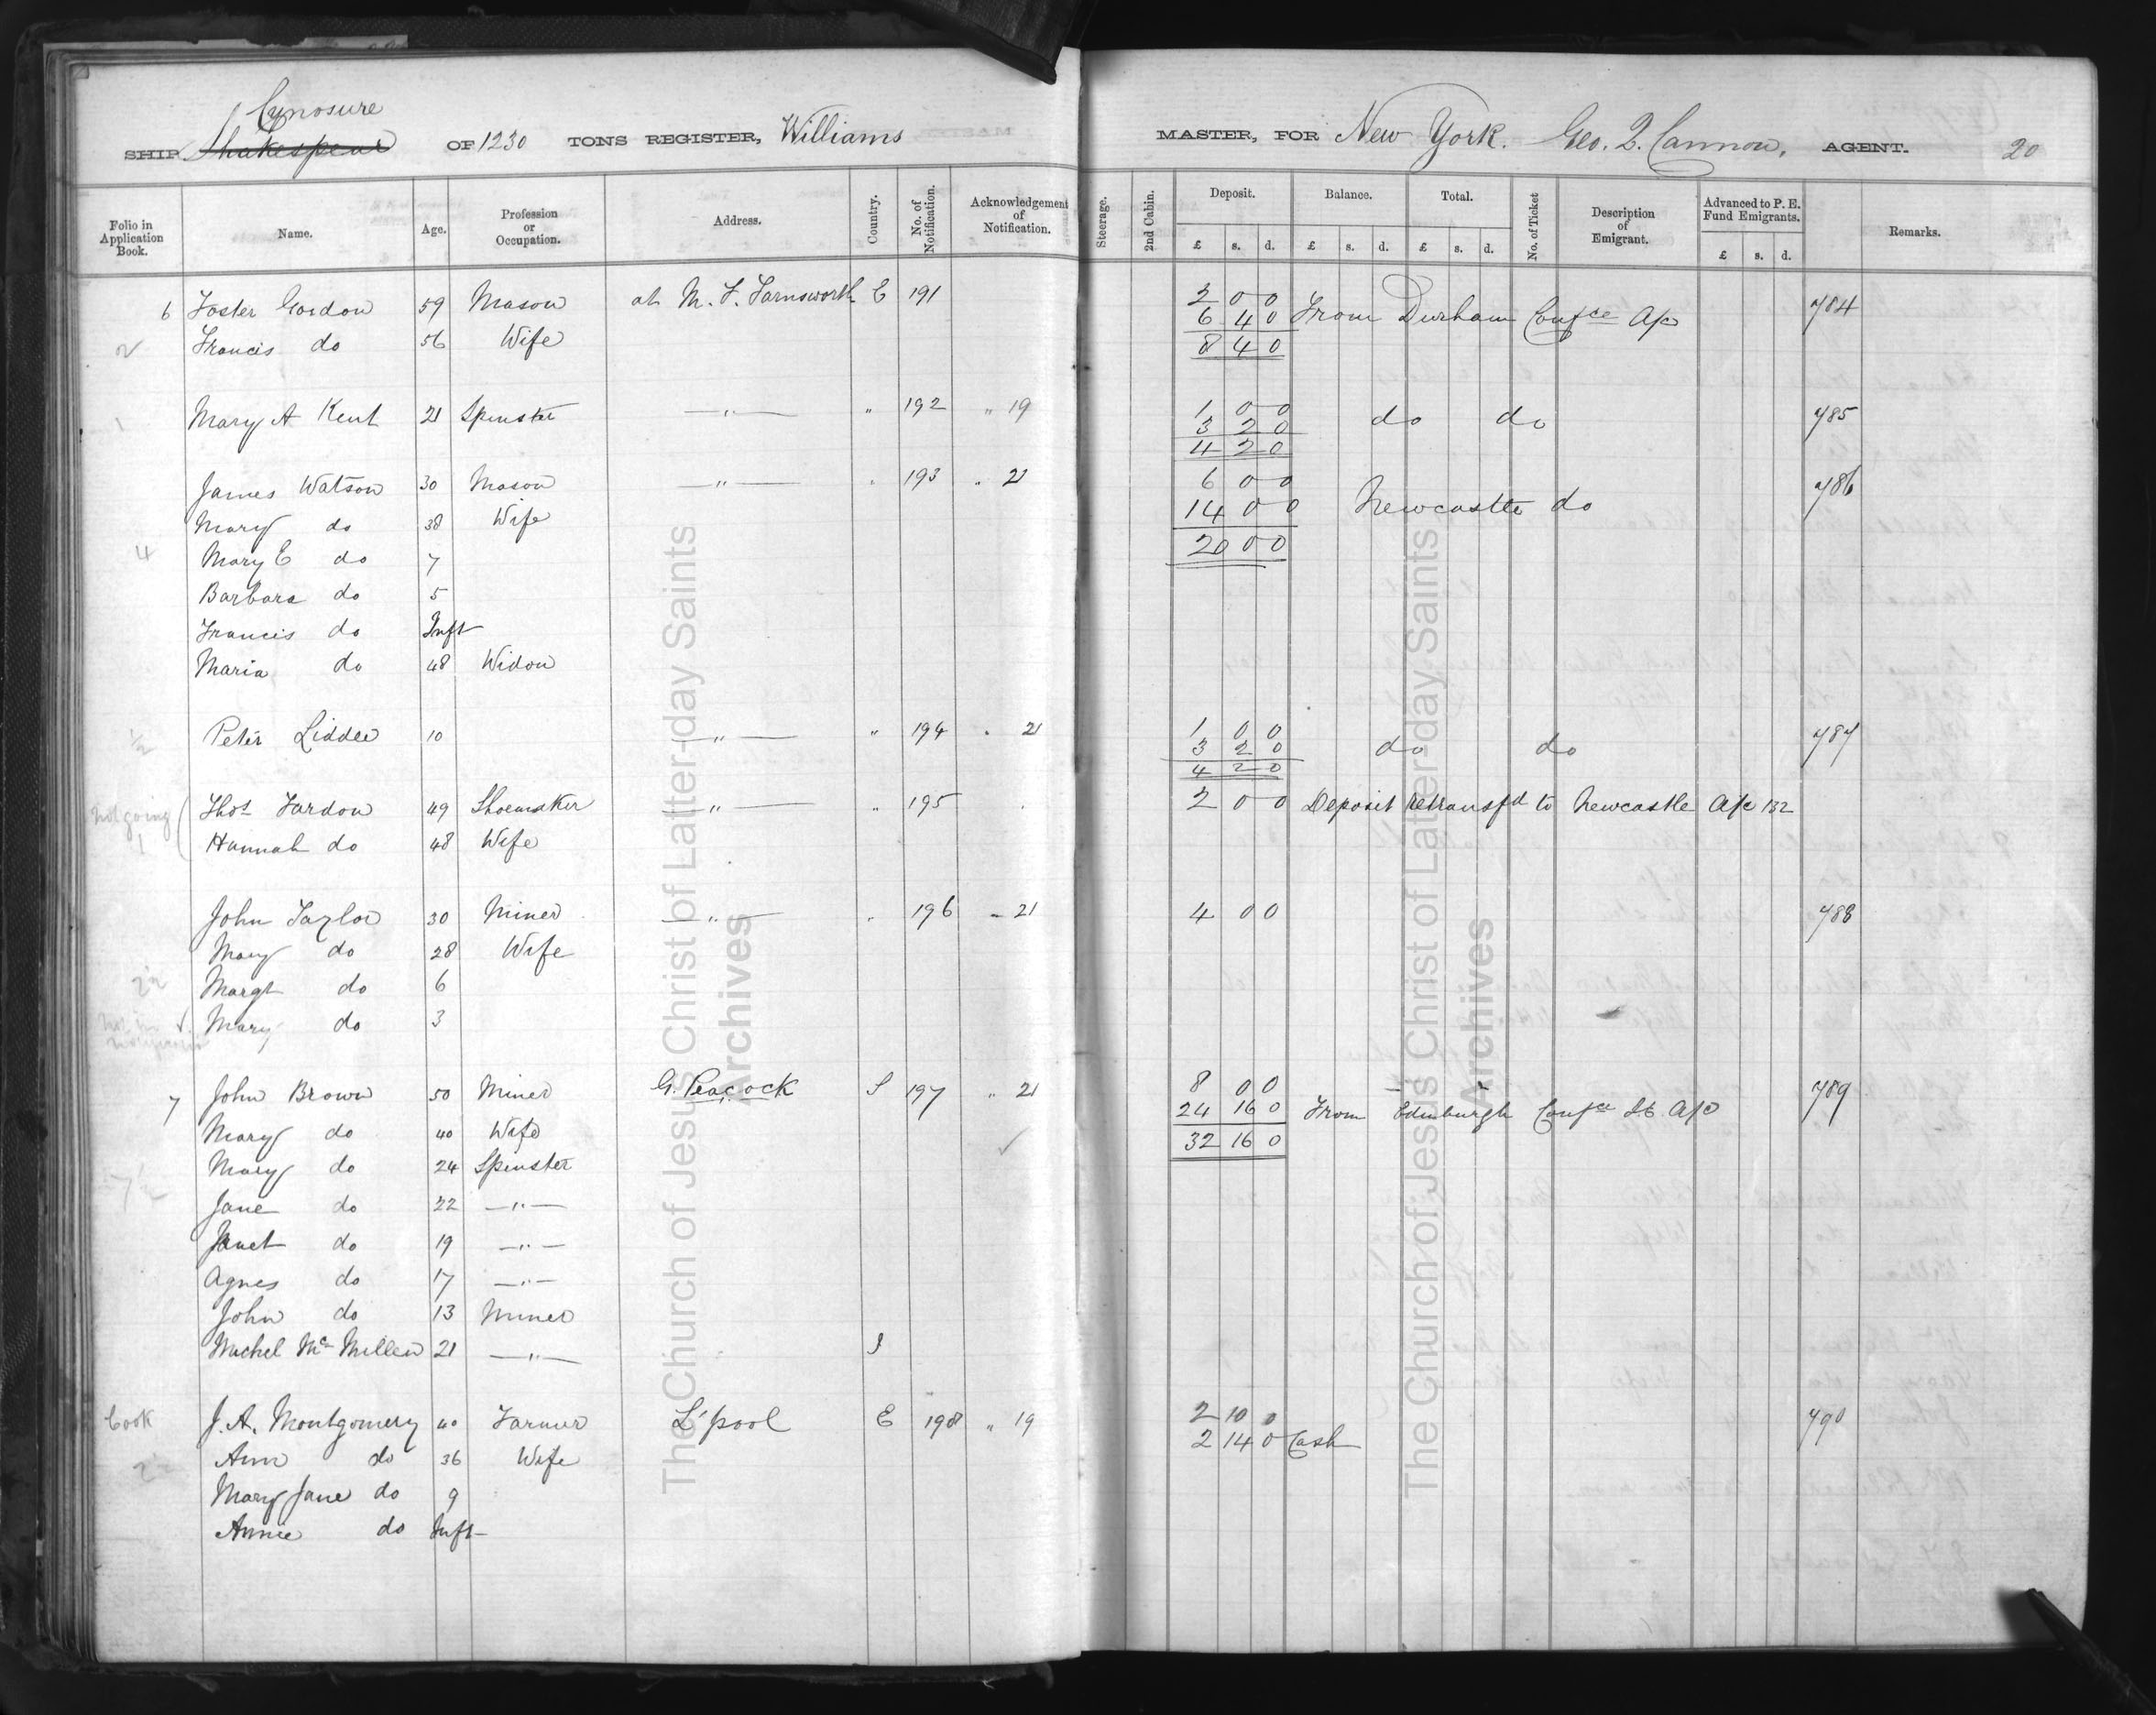 Cynosure
SHIP Shakespear OF 1230 TONS REGISTER, Williams MASTER, FOR New York. Geo. Q. Cannon, AGENT. 20
Folio in Application Book. Name. Age. Profession or Occupation. Address. Country. No. of Notification. Acknowledgement of Notification. Steerage. 2nd Cabin. Deposit. £ s. d. Balance. £ s. d. Total. £ s. d. No. of Ticket Description of Emigrant. Advanced to P. E. Fund Emigrants. £ s. d. Remarks.
6 Foster Gordon 59 Mason at M. F. Farnsworth E 191 2 0 0 784
6 4 0 From Durham Confce A/c
2 Francis do 56 Wife 8 4 0
1 Mary A Kent 21 Spinster " " 192 " 19 1 0 0 do do 785
3 2 0
4 2 0
James Watson 30 Mason " " 193 " 21 6 0 0 786
Mary do 38 Wife 14 0 0 Newcastle do
4 Mary E do 7 20 0 0
Barbara do 5
Francis do Inft
Maria do 48 Widow
½ Peter Liddle 10 " " 194 " 21 1 0 0 787
3 2 0 do do
4 2 0
Not going Thos Fardon 49 Shoemaker " " 195 2 0 0 Deposit retransfd to Newcastle A/c 132
1 Hannah do 48 Wife
John Taylor 30 Miner " " 196 " 21 4 0 0 788
Mary do 28 Wife
2½ Margt do 6
Mary do 3
7 John Brown 50 Miner G. Peacock S 197 " 21 8 0 0 789
24 16 0 From Edinburgh Confce A/c
Mary do 40 Wife 32 16 0
7½ Mary do 24 Spinster
Jane do 22 "
Janet do 19 "
Agnes do 17 "
John do 13 Miner
Michel Mc Millen 21 " I
Cook J. A. Montgomery 40 Farmer L'pool E 198 " 19 2 10 0 790
2 14 0 Cash
2½ Ann do 36 Wife
Mary Jane do 9
Annie do Inft
The Church of Jesus Christ of Latter-day Saints
Archives
The Church of Jesus Christ of Latter-day Saints
Archives